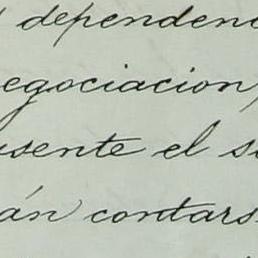 dependenc
egociacion,
usente el s
án contars